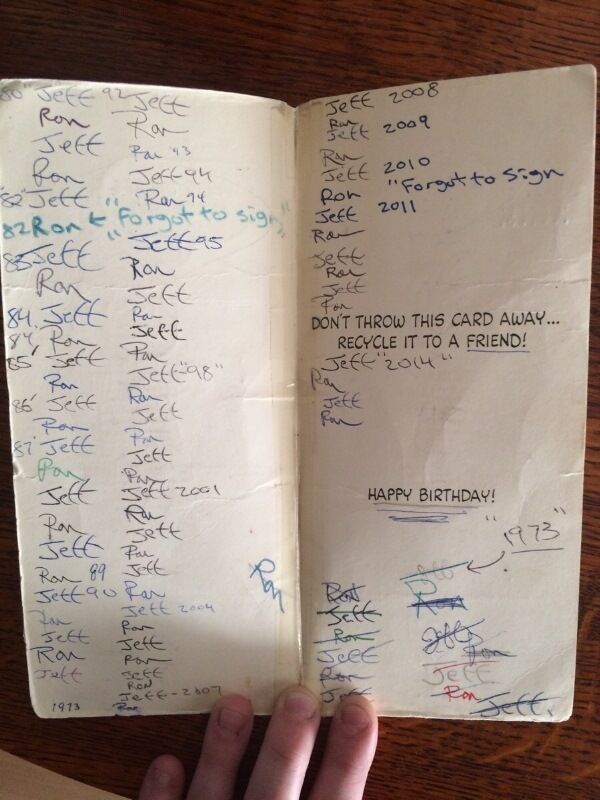 80" Jeff
Ron
Jeff
Ron
'82 Jeff
82 Ron ← "Forgot to sign"
83 Jeff
Ron
84. Jeff
84' Ron
85' Jeff
Ron
86' Jeff
Ron
87' Jeff
Ron
Jeff
Ron
Jeff
Ron 89
Jeff 90
Ron
Jeff
Ron
Jeff
1973
92 Jeff
Ron
Ron '93
Jeff 94
Ron 94
Jeff 95
Ron
Jeff
Ron
Jeff
Ron
Jeff "98"
Ron
Jeff
Ron
Jeff
Ron
Jeff 2001
Ron
Jeff
Ron
Jeff
Ron
Jeff 2004
Ron
Jeff
Ron
Jeff
RON
Jeff - 2007
Ron
Ron
Jeff 2008
Ron
Jeff 2009
Ron
Jeff 2010
Ron "Forgot to sign
Jeff 2011
Ron
Jeff
Ron
Jeff
Ron
DON'T THROW THIS CARD AWAY...
RECYCLE IT TO A FRIEND!
Jeff "2014"
Ron
Jeff
Ron
HAPPY BIRTHDAY!
"1973"
Ron
Jeff
Ron
Jeff
Ron
Jeff
Jeff
Ron
Jeff
Ron
Jeff
Ron
Jeff.